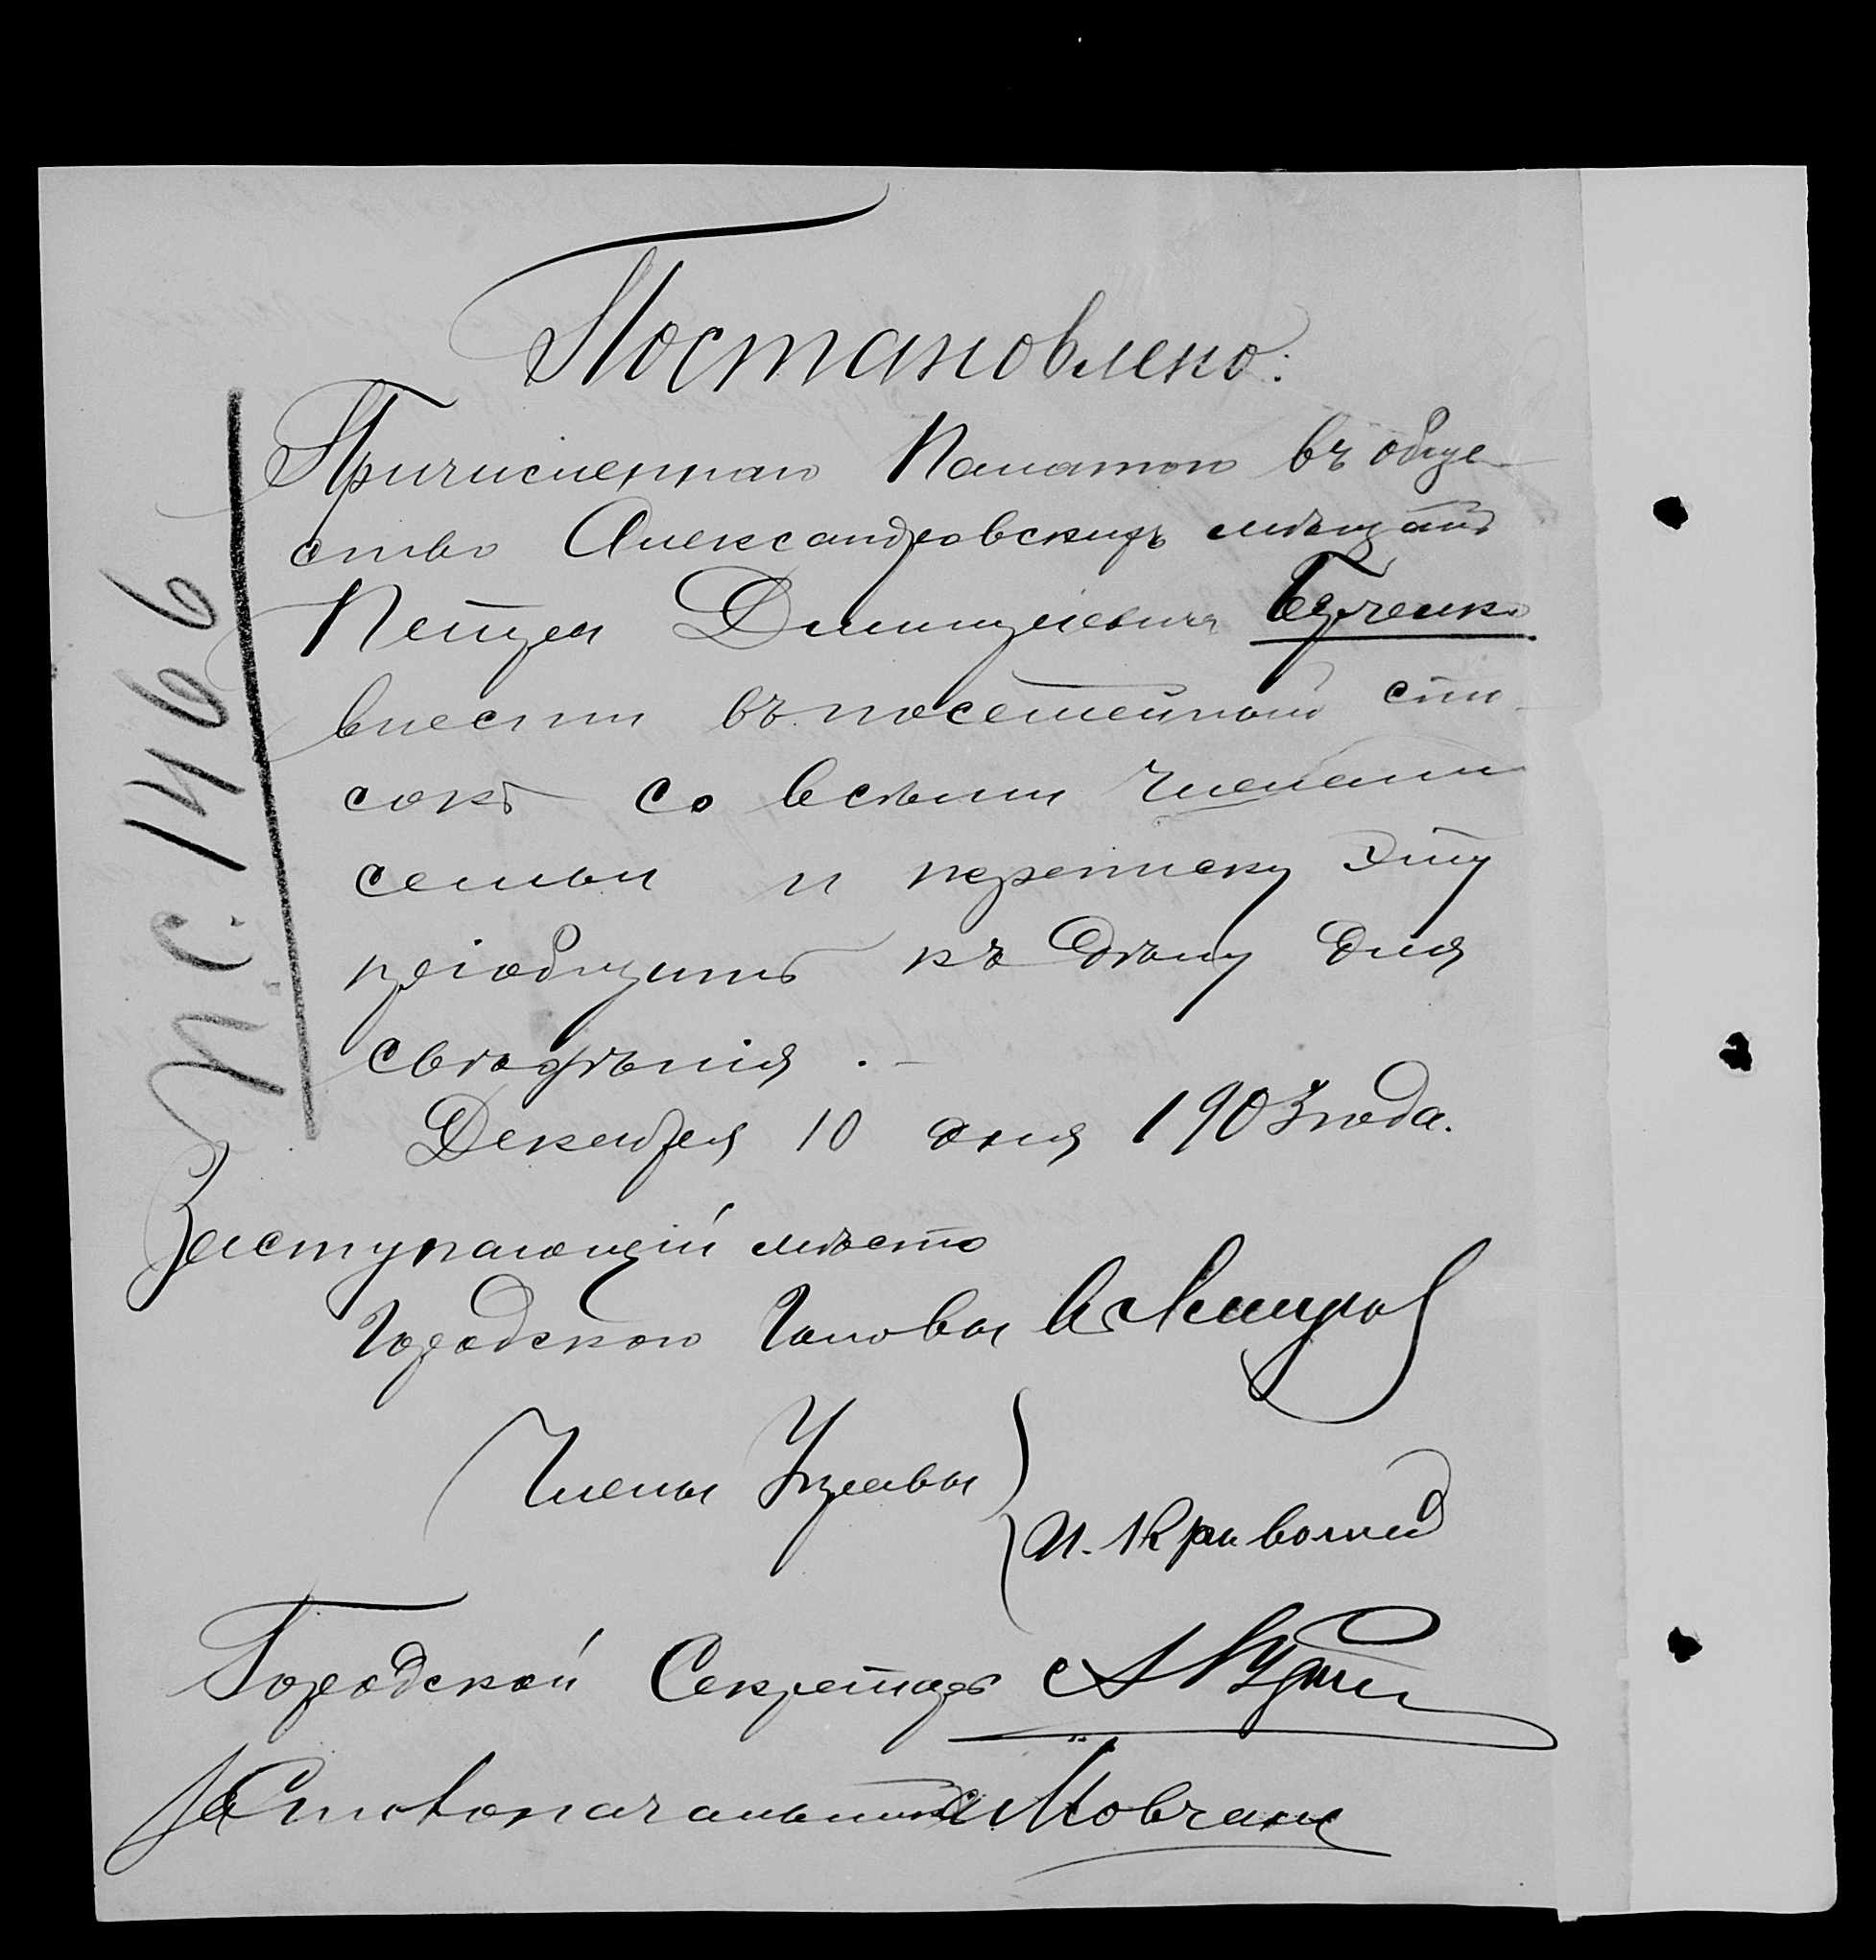 Постановлено:
Причисленнаго Палатою въ обще-
ство Александровскихъ мѣщанъ
Петра Димитріевича
внести въ посемейный спи-
сокъ со всѣми членами
семьи и переписку эту
пріобщить къ дѣлу для
свѣдѣнія.-
Декабря 10 дня 1903 года.
П.С. 1466
Заступающій мѣсто
Городского Головы
Члены Управы
И. Кривошей
Городской Секретарь
За Столоначальника Мовчанъ